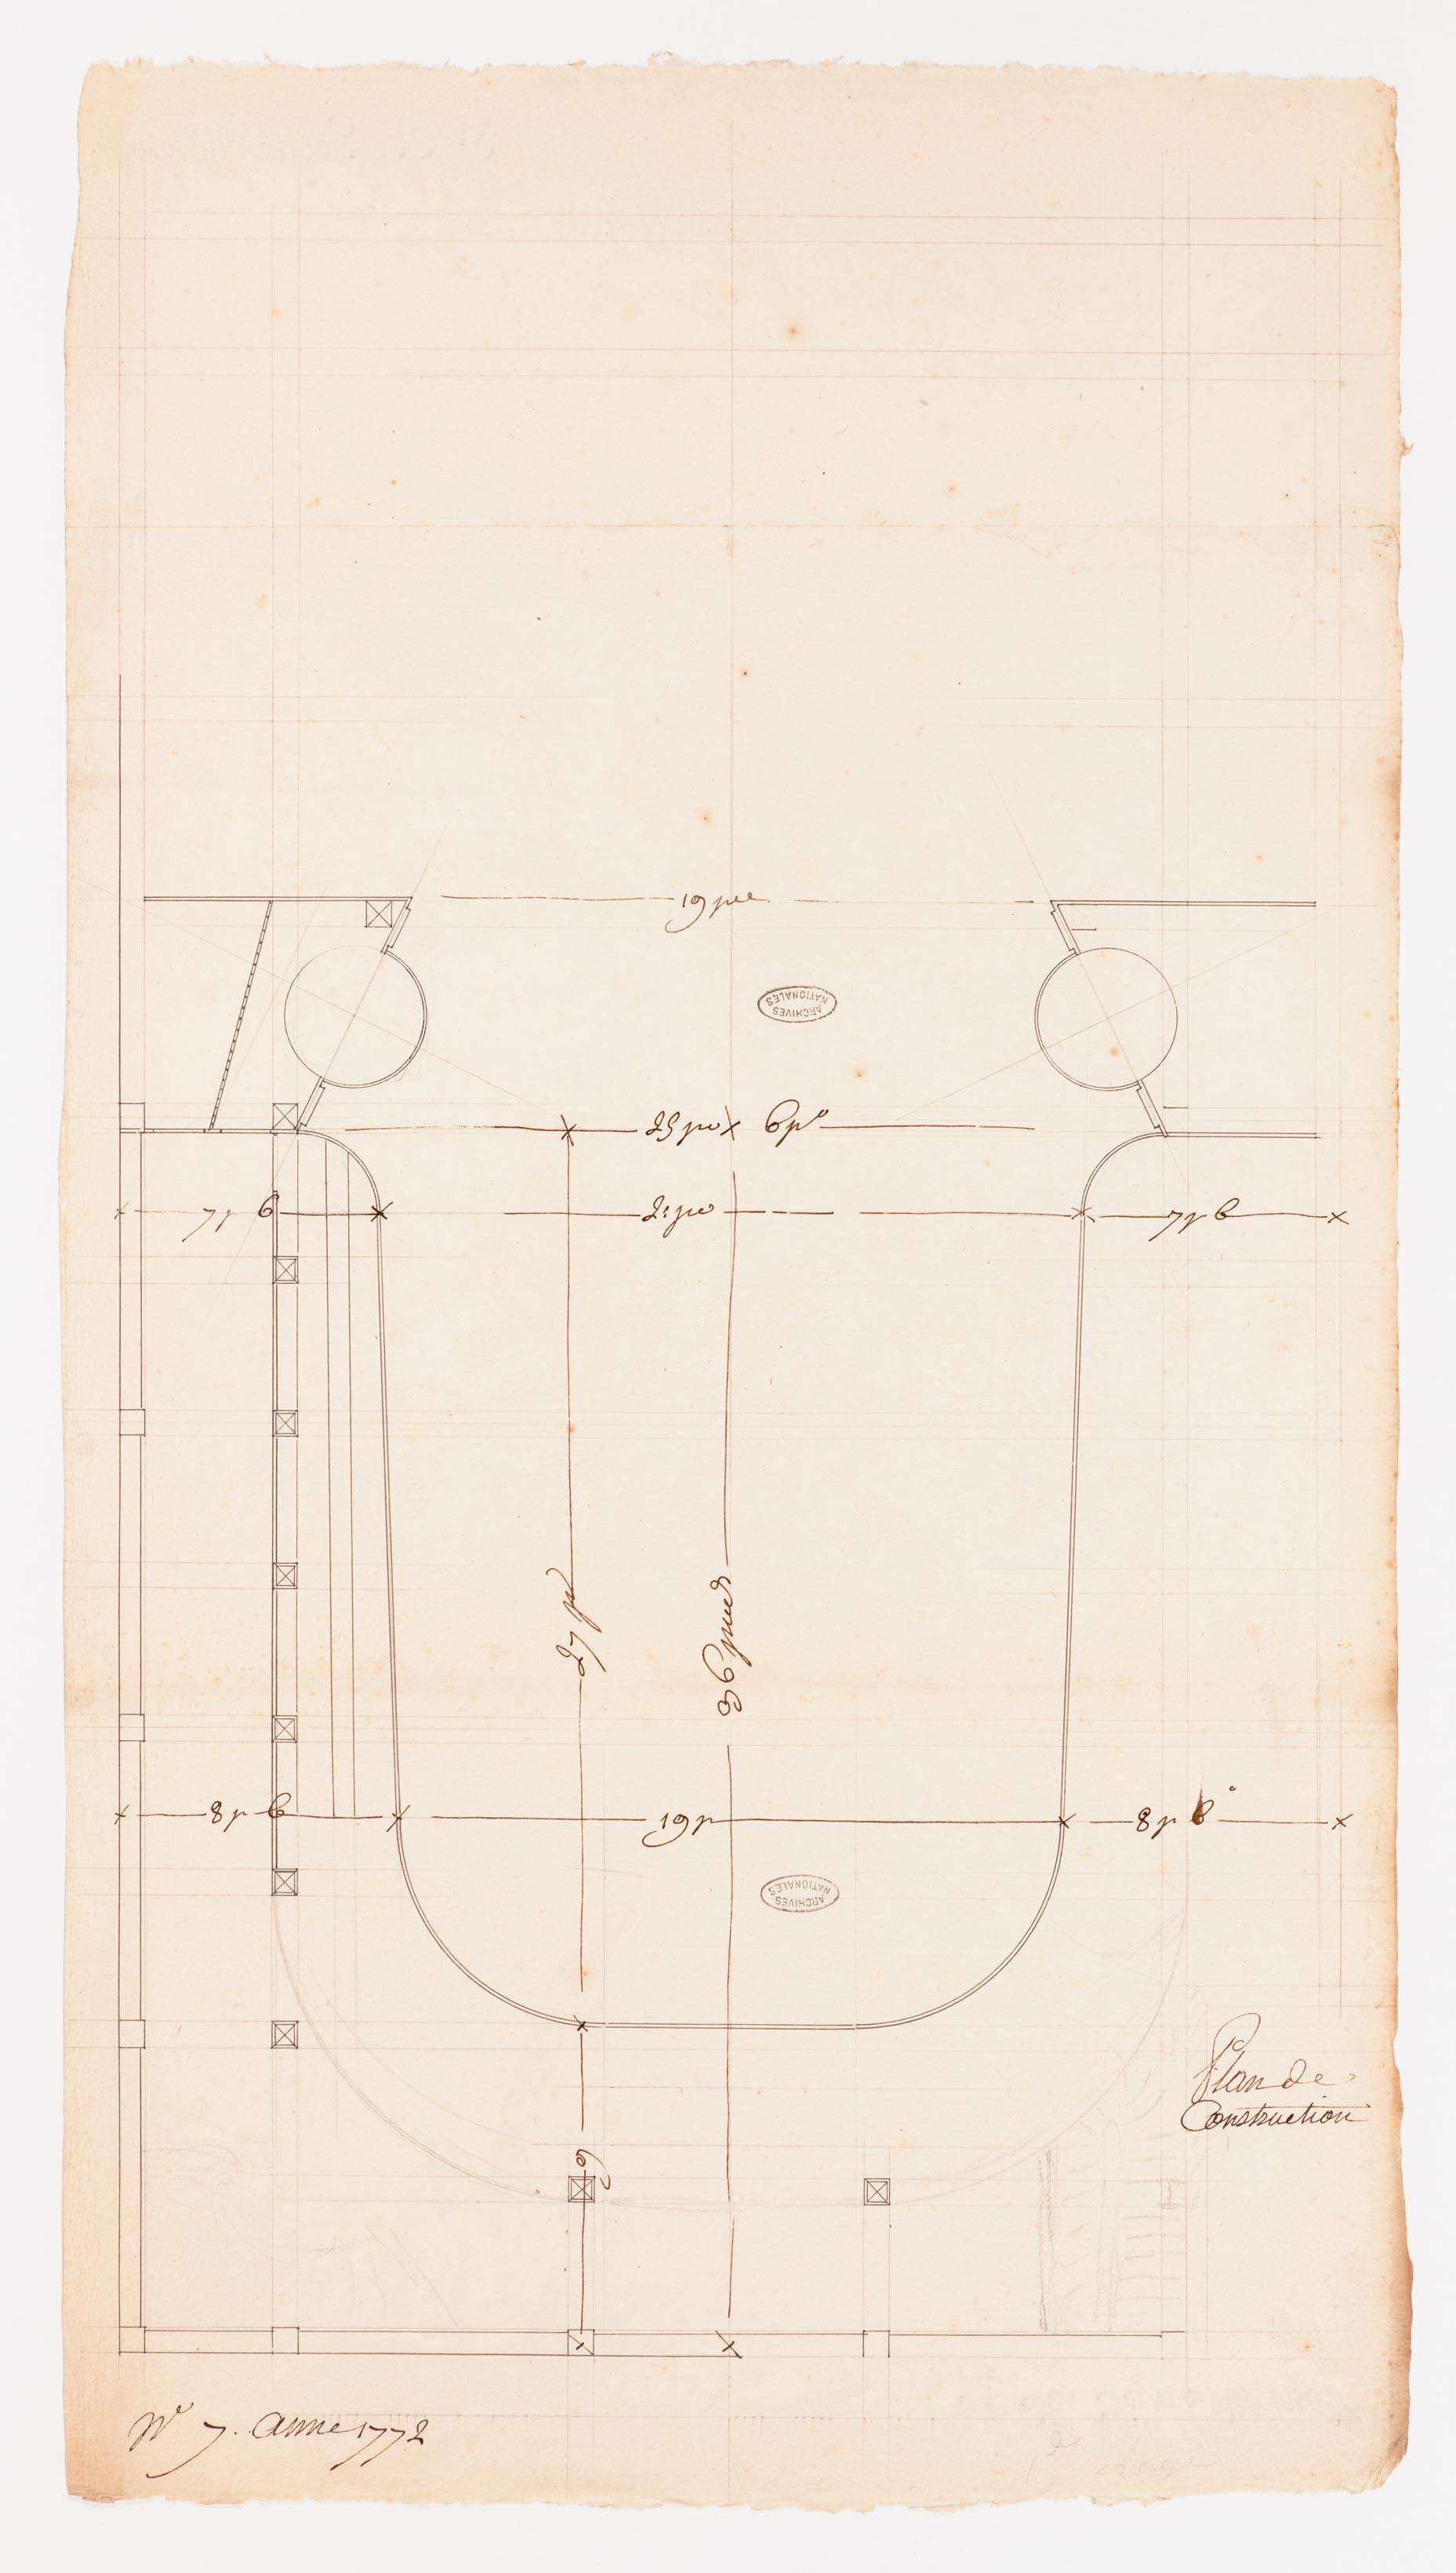 19 pie
ARCHIVES
NATIONALES
25 pie 6 po
7 p 6
21 pie
7 p 6
27 pi
36 pieds
8 p 6
19 p
8 p 6
ARCHIVES
NATIONALES
Plan de
Construction
9
No 7. Anne 1772